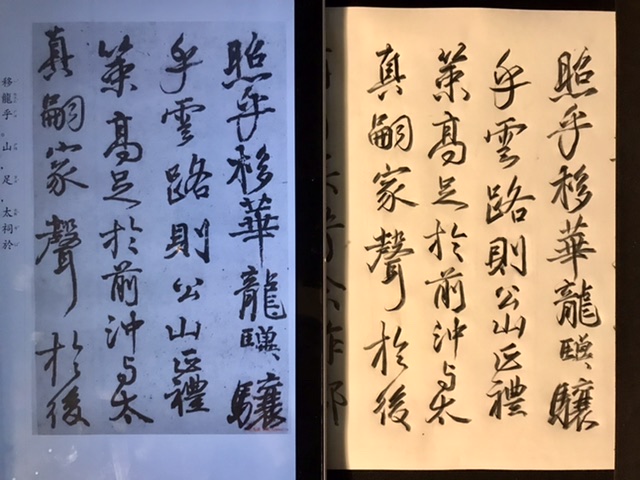 移龍乎 山 足 太祠於
照乎移華龍驤
乎雲路則公山正禮
策高足於前沖与太
真嗣家聲於後
照乎移華龍驤
乎雲路則公山正禮
策高足於前沖与太
真嗣家聲於後